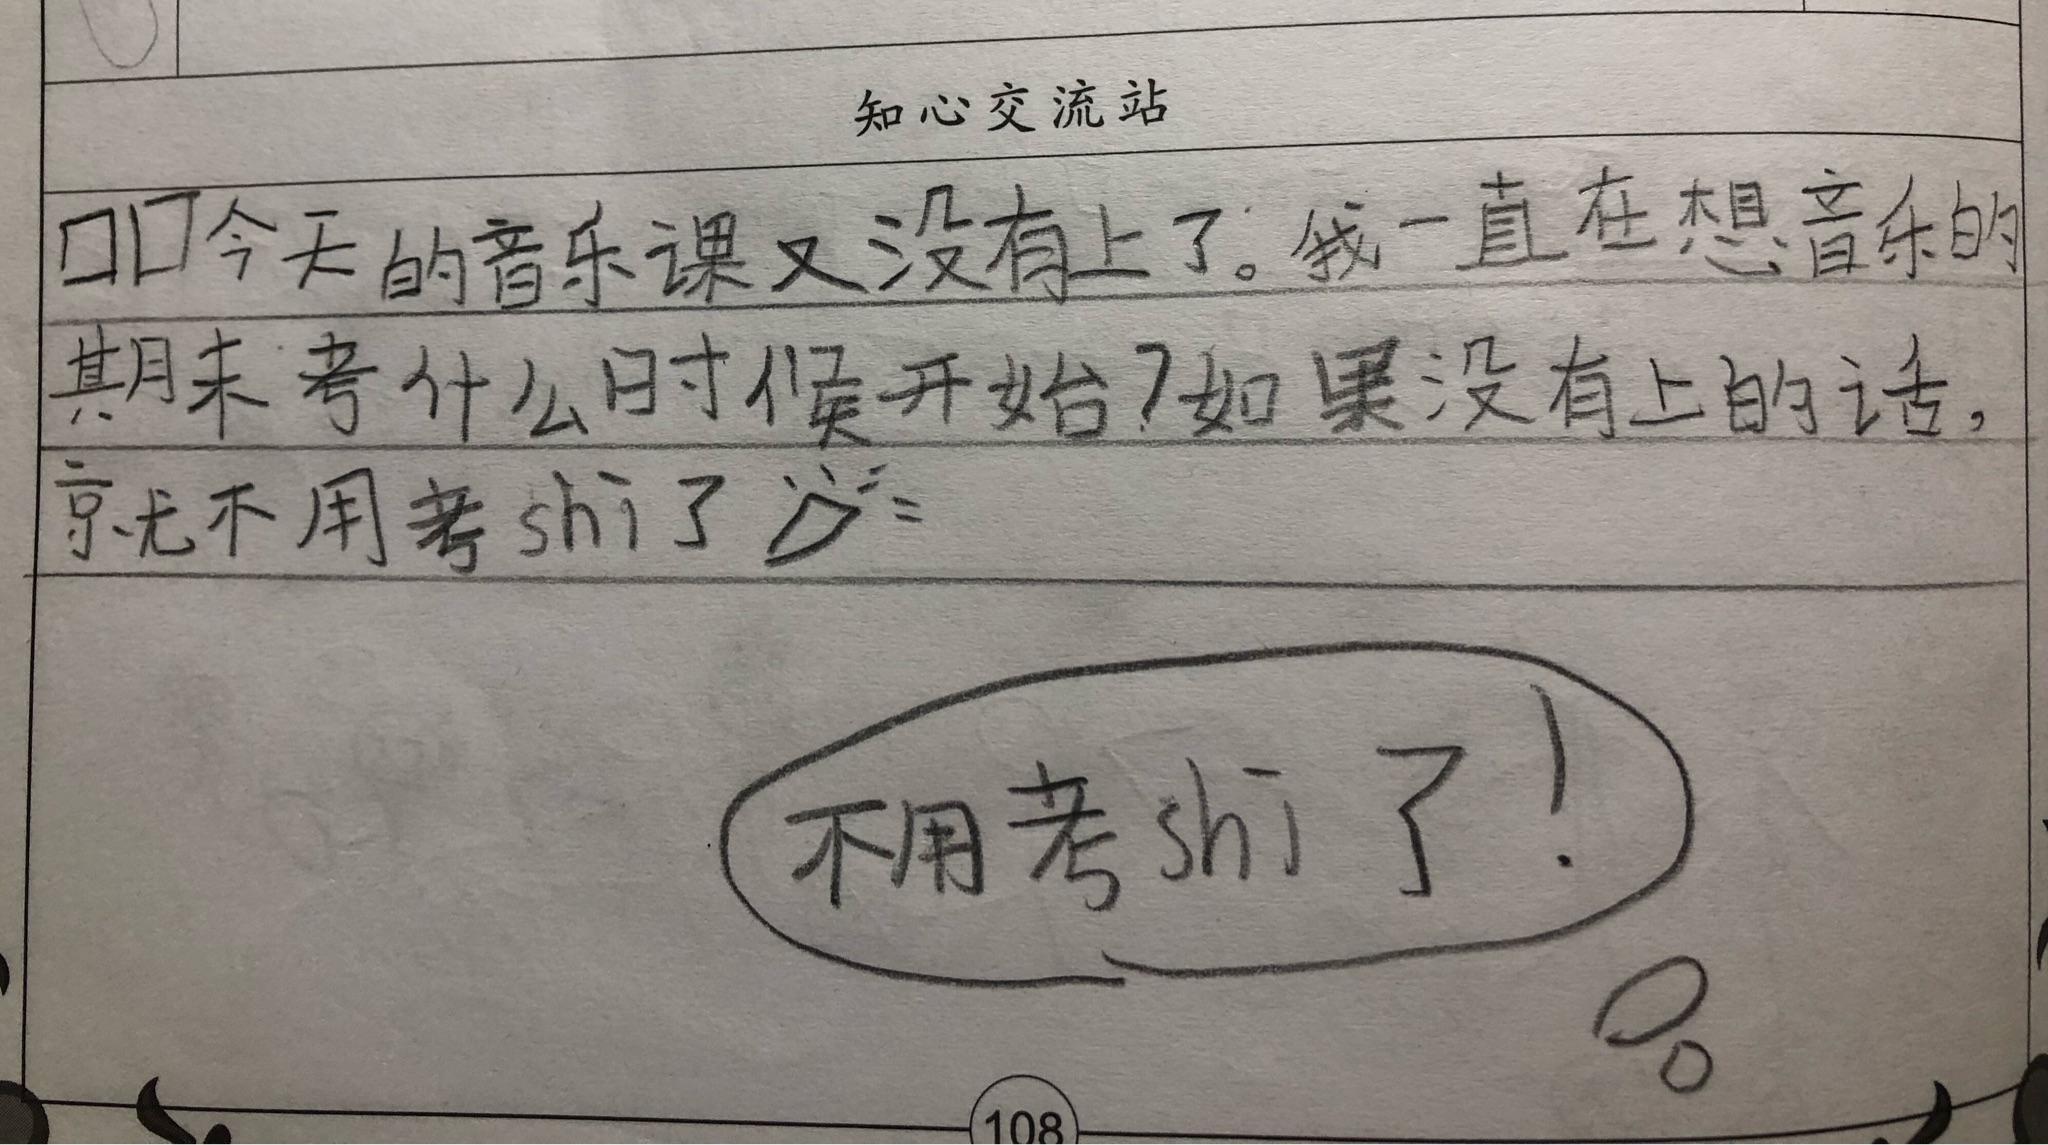 知心交流站
口口今天的音乐课又没有上了。我一直在想音乐的
期末考什么时候开始？如果没有上的话，
就不用考shi了
不用考shi了！
108